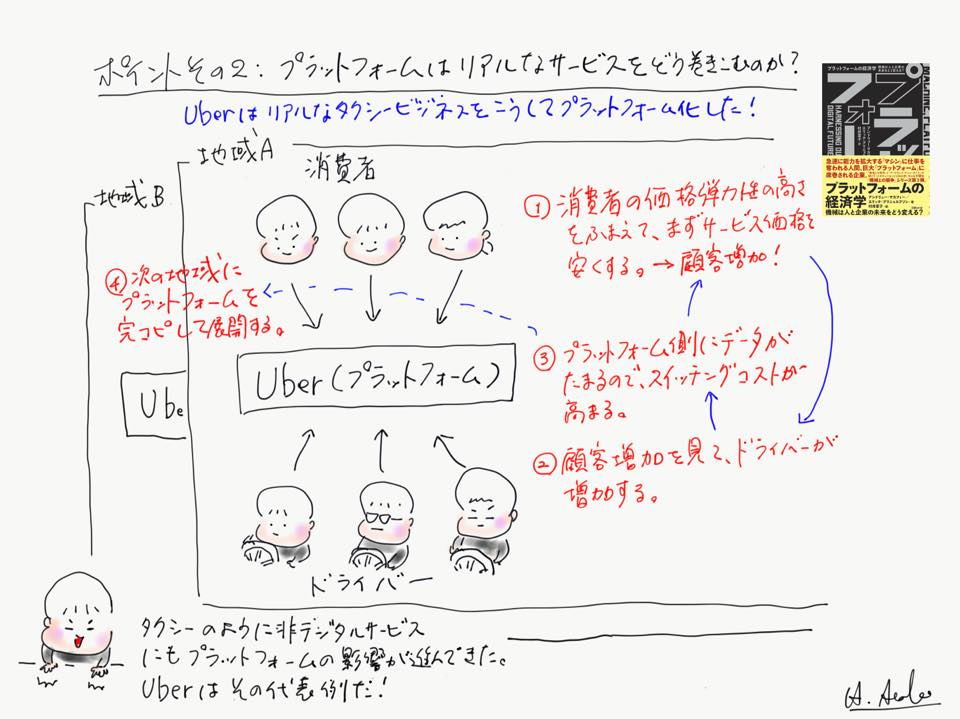 ポイントその2：プラットフォームはリアルなサービスをどう巻きこむのか？
Uberはリアルなタクシービジネスをこうしてプラットフォーム化した！
地域A
地域B
消費者
① 消費者の価格弾力性の高さ
をふまえて、まずサービス価格を
安くする。→顧客増加！
④ 次の地域に
プラットフォームを
完コピして展開する。
Uber(プラットフォーム)
Ube
③ プラットフォーム側にデータが
たまるので、スイッチングコストが
高まる。
② 顧客増加を見て、ドライバーが
増加する。
ドライバー
タクシーのように非デジタルサービス
にもプラットフォームの影響が進んできた。
Uberはその代表例だ！
プラットフォームの経済学
プラッ
フォー
HARNESSING OU
DIGITAL FUTURE
急速に能力を拡大する「マシン」に仕事を
奪われる人間、巨大「プラットフォーム」に
席巻される企業。
プラットフォームの
経済学
機械は人と企業の未来をどう変える？